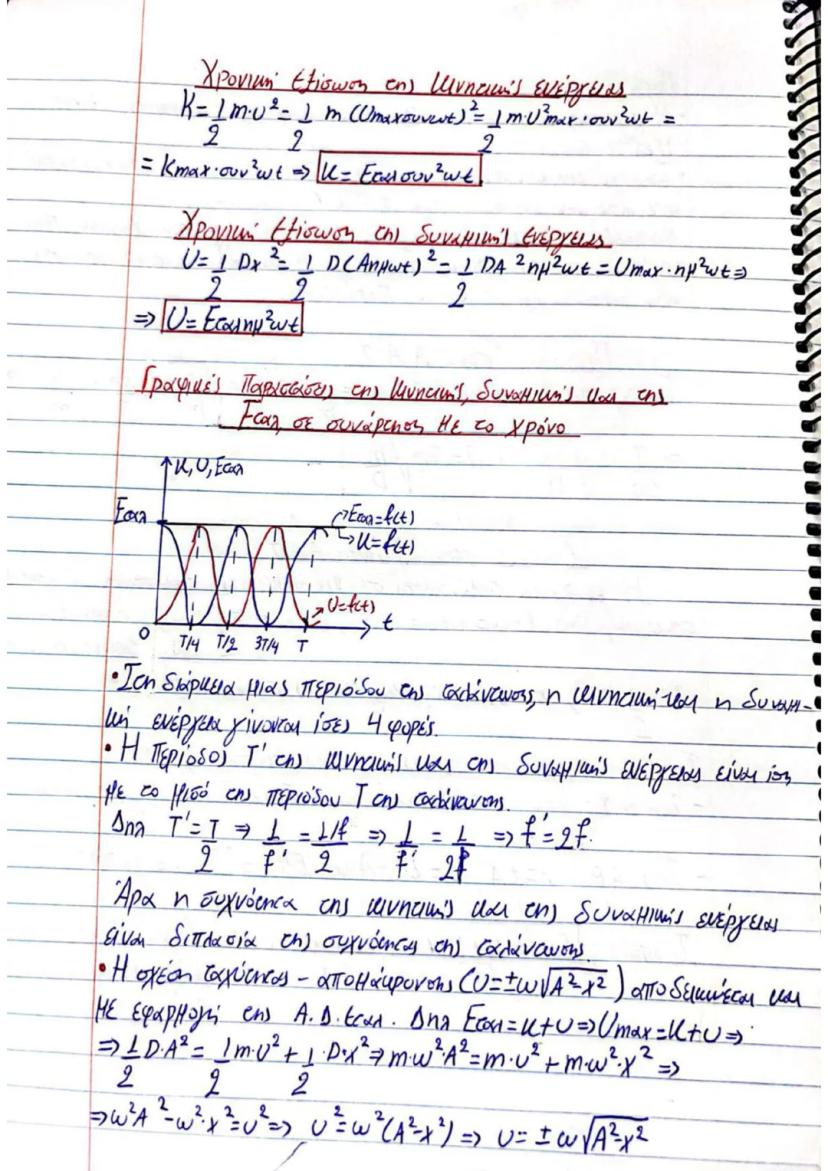 Χρονική εξίσωση της κινητικής ενέργειας
K = 1/2 m·υ² = 1/2 m (υmaxσυνωt)² = 1/2 m·υ²max·συν²ωt =
= Kmax·συν²ωt ⇒ K = Εταλσυν²ωt
Χρονική εξίσωση της δυναμικής ενέργειας
U = 1/2 Dx² = 1/2 D(Aημωt)² = 1/2 DA²ημ²ωt = Umax·ημ²ωt ⇒
⇒ U = Εταλημ²ωt
Γραφικές Παραστάσεις της κινητικής, δυναμικής και της
Εταλ σε συνάρτηση με το χρόνο
K, U, Εταλ
Εταλ
Εταλ = f(t)
K = f(t)
U = f(t)
0 T/4 T/2 3T/4 T t
• Στη διάρκεια μιας περιόδου της ταλάντωσης, η κινητική και η δυναμι-
κή ενέργεια γίνονται ίσες 4 φορές.
• Η περίοδος T' της κινητικής και της δυναμικής ενέργειας είναι ίση
με το μισό της περιόδου T της ταλάντωσης.
Δηλ T' = T/2 ⇒ 1/f' = 1/f/2 ⇒ 1/f' = 1/2f ⇒ f' = 2f.
Άρα η συχνότητα της κινητικής και της δυναμικής ενέργειας
είναι διπλάσια της συχνότητας της ταλάντωσης.
• Η σχέση ταχύτητας - απομάκρυνσης (υ = ±ω√A²-x²) αποδεικνύεται και
με εφαρμογή της Α.Δ.Εταλ. Δηλ Εταλ = K + U ⇒ Umax = K + U ⇒
⇒ 1/2 D·A² = 1/2 m·υ² + 1/2 D·x² ⇒ m·ω²·A² = m·υ² + m·ω²·x² ⇒
⇒ ω²A² - ω²·x² = υ² ⇒ υ² = ω²(A²-x²) ⇒ υ = ±ω√A²-x²